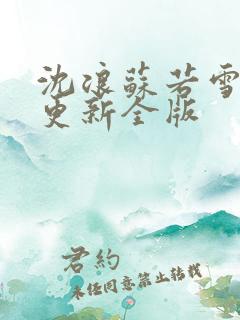 沈浪蘇若雪
更新全版
君約
未經同意禁止轉載